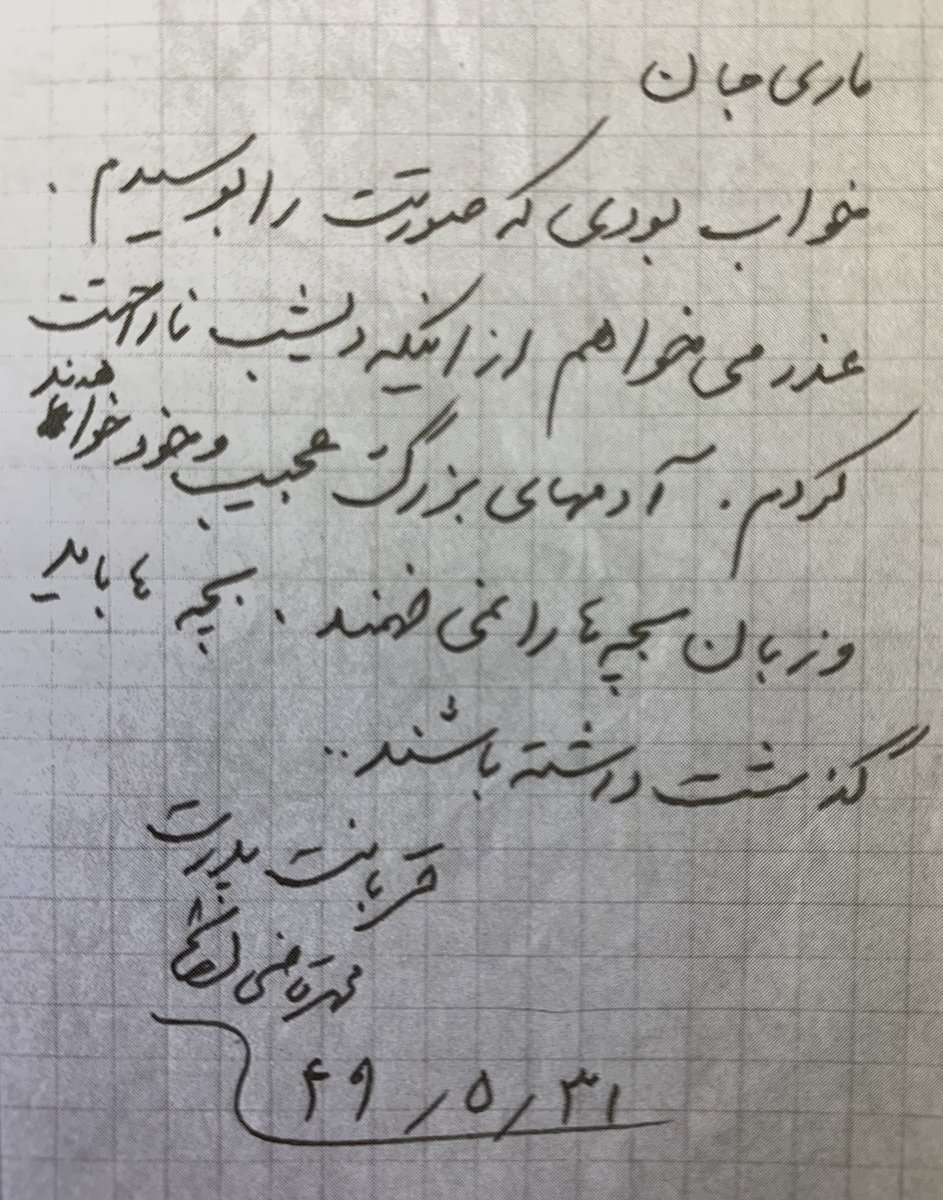 ماری جان
خواب بودی که صورتت را بوسیدم .
عذر می خواهم از اینکه دیشب ناراحتت
کردم . آدمهای بزرگ عجیب و خود خواهند
و زبان بچه ها را نمی فهمند . بچه ها باید
گذشت داشته باشند ..
قربانت پدرت
۴۹/۵/۳۱